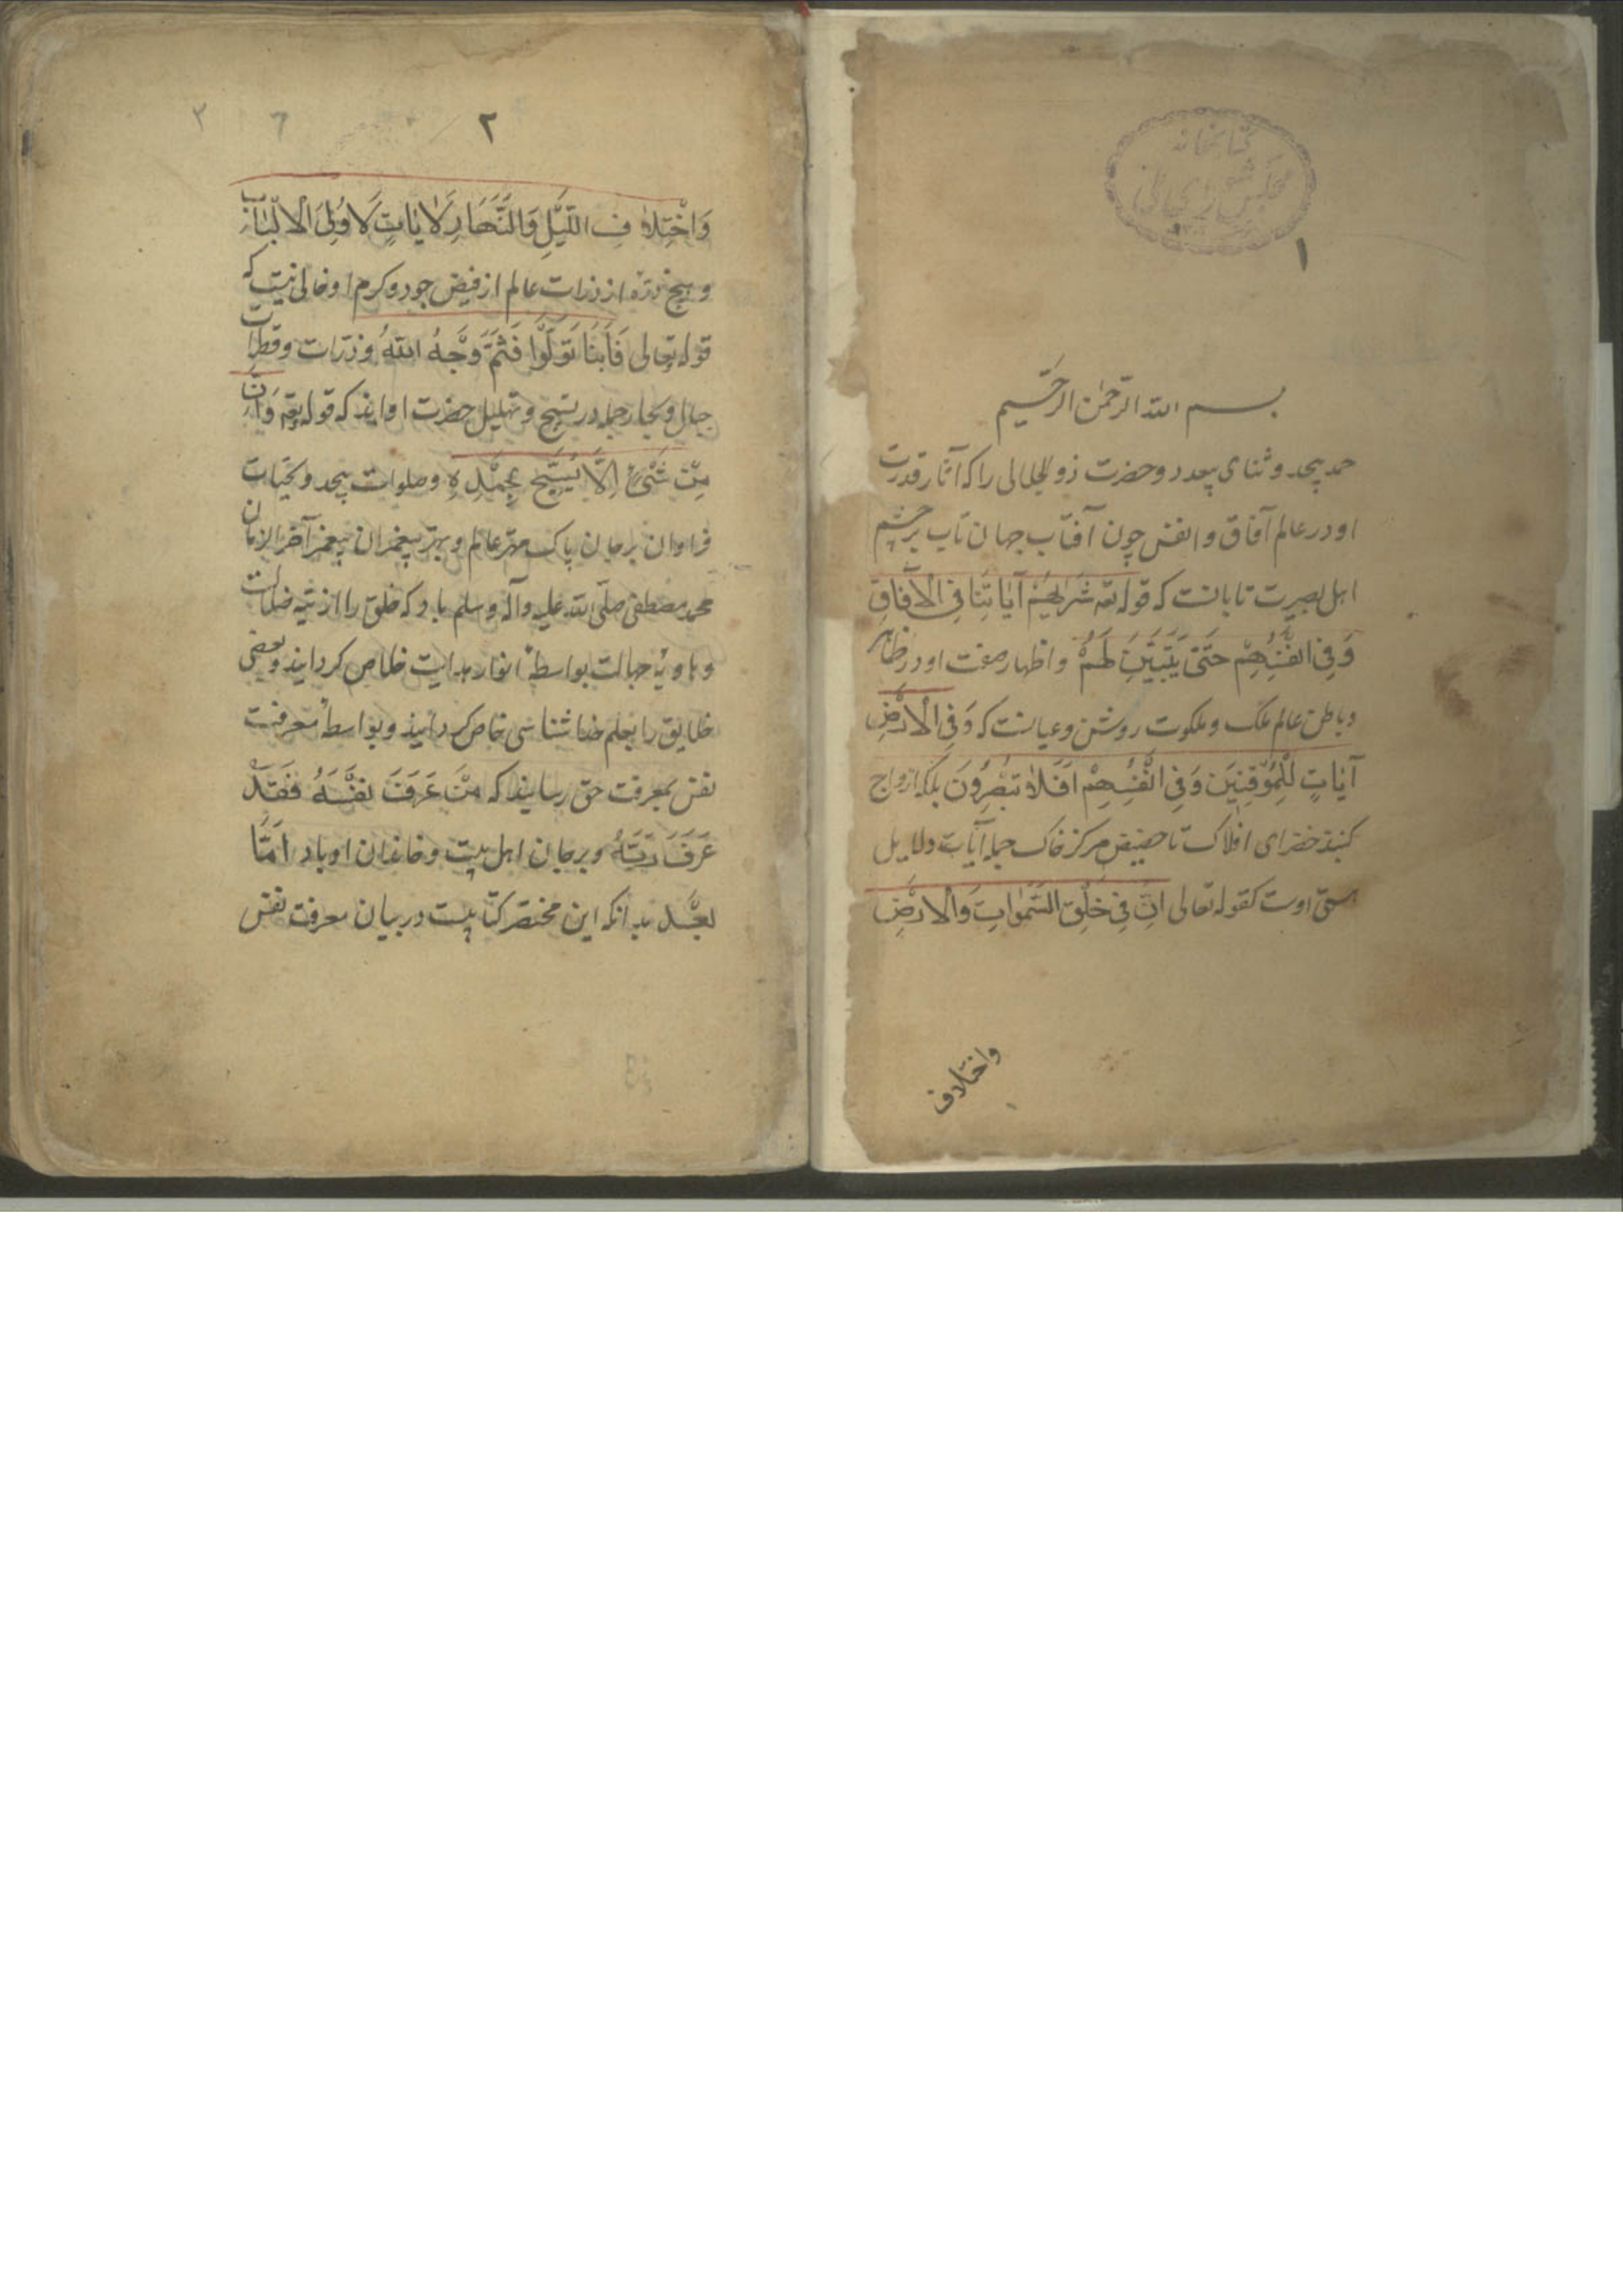 کتابخانه
مجلس شورای ملی
۱
بسم الله الرحمن الرحیم
حمد بیحد و ثنای بیعدد و حضرت ذو الجلالی را که آثار قدرت
او در عالم آفاق و انفس چون آفتاب جهان تاب بر چشم
اهل بصیرت تابانست که قوله تعه سَنُریهِمْ آیاتِنَا فِی الْآفاقِ
وَفِی انْفُسِهِمْ حَتّیٰ یَتَبَیَّنَ لَهُمْ و اظهار صفت او در ظاهر
و باطن عالم ملک و ملکوت روشن و عیانست که وَفِی الْاَرْضِ
آیاتٍ لِلْمُوقِنِینَ وَفِی انْفُسِهِمْ اَفَلاٰ تُبْصِرُونَ بلکه از واج
کنبذ خضرای افلاک تا حضیض مرکز خاک جمله آیات و دلایل
هستی اوست کقوله تعالی اِنَّ فِی خَلْقِ السَّمٰوٰاتِ وَالْاَرْضِ
واختلاف
۲
وَاخْتِلاٰفِ اللَّیْلِ وَالنَّهَارِ لَاٰیٰاتٍ لِاُولِی الْاَلْبٰابِ
و هیچ ذره از ذرات عالم از فیض جود و کرم او خالی نیست که
قوله تعالی فَاَیْنَمَا تَوَلَّوْا فَثَمَّ وَجْهُ اللّهُ و ذرات و قطرات
جبال و بحار جمله در تسبیح و تهلیل حضرت او اند که قوله تعه وَاِنْ
مِنْ شَیْءٍ اِلَّا یُسَبِّحُ بِحَمْدِهِ و صلوات بیحد و تحیات
فراوان بر جان پاک مهتر عالم و بهتر پیغمبران پیغمبر آخر الزمان
محمد مصطفی صلّی الله علیه وآله وسلم باد که خلق را از تیه ضلالت
و هاویهٔ جهالت بواسطهٔ انوار هدایت خلاص کردانید و بعضی
خلایق را بعلم خدا شناسی خاص کردانید و بواسطهٔ معرفت
نفس بمعرفت حق رسانید که مَنْ عَرَفَ نَفْسَهُ فَقَدْ
عَرَفَ رَبَّهُ و بر جان اهل بیت و خاندان او باد اَمَّا
بَعْد بدانکه این مختصر کتابیست در بیان معرفت نفس